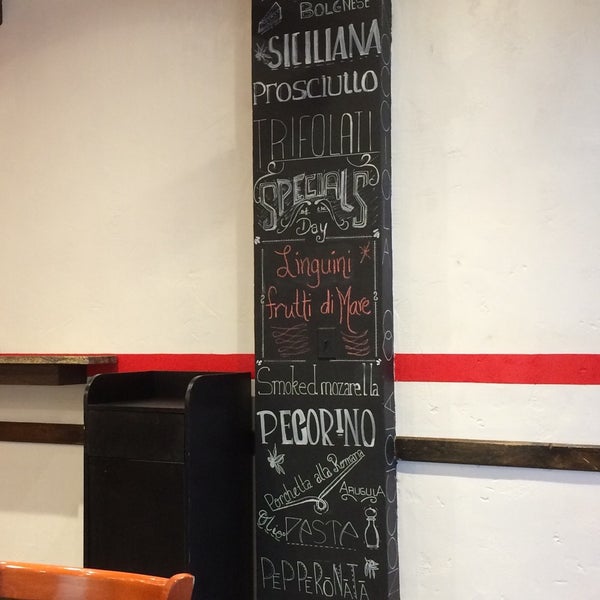 BOLGNESE
SICILIANA
PROSCIUTTO
TRIFOLATI
SPECIALS
of the
Day
Linguini
frutti di Mare
Smoked mozarella
PECORINO
Porchetta alla Romana
ARUGULA
Olio
PASTA
PEPPERONATA